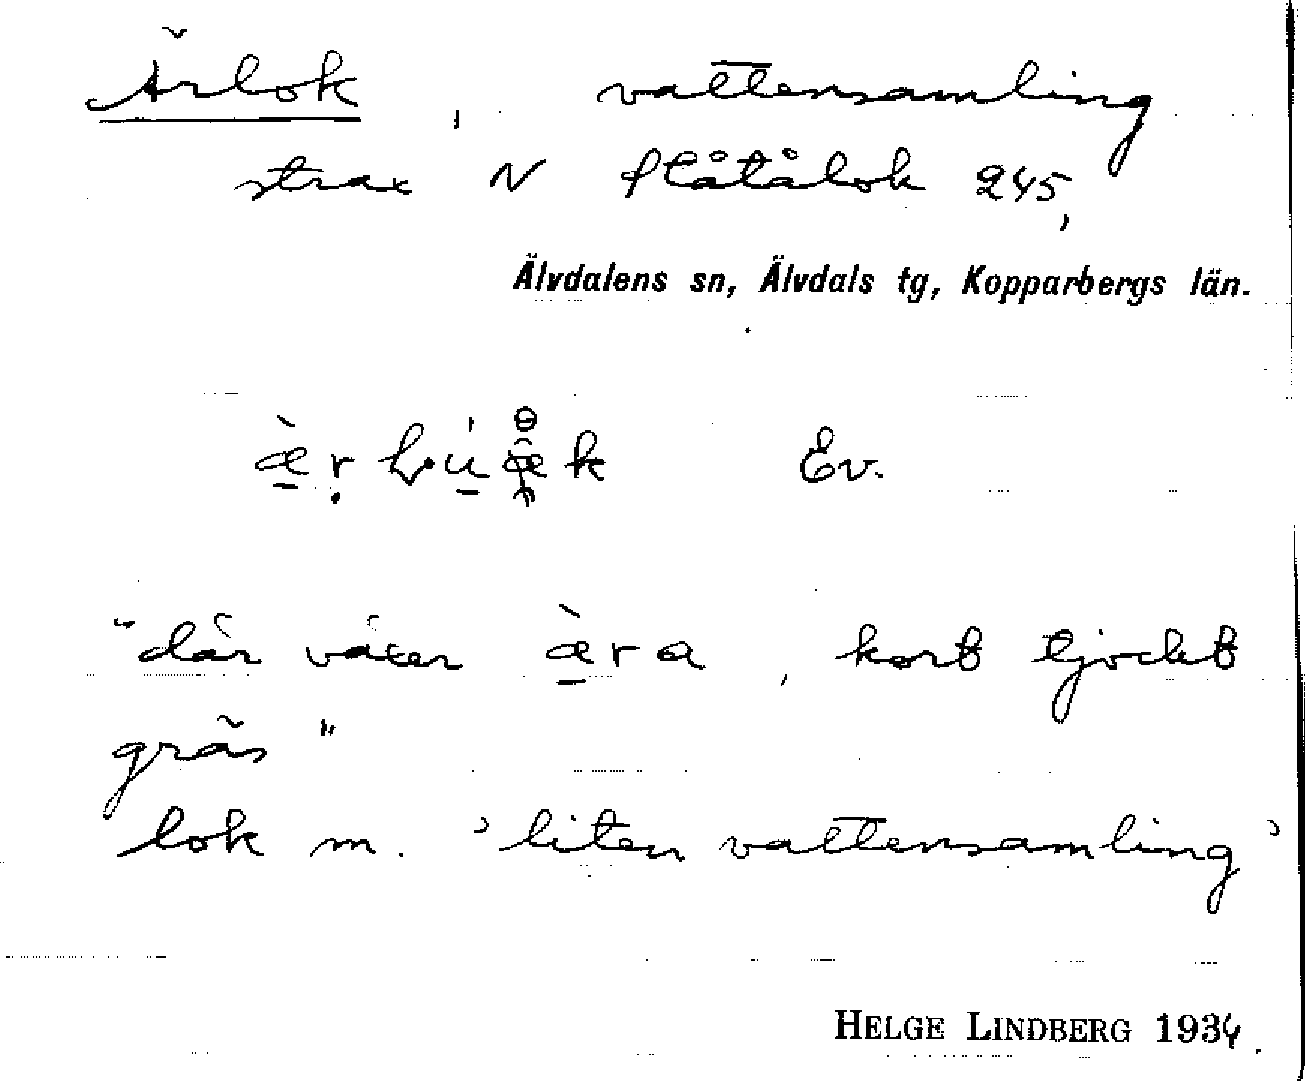 Ärlok, vattensamling
strax N Slåtålok 245,
Älvdalens sn, Älvdals tg, Kopparbergs län.
Ev.
"där växer æ̀ra, kort tjockt
gräs"
lok m. 'liten vattensamling'
HELGE LINDBERG 1934.